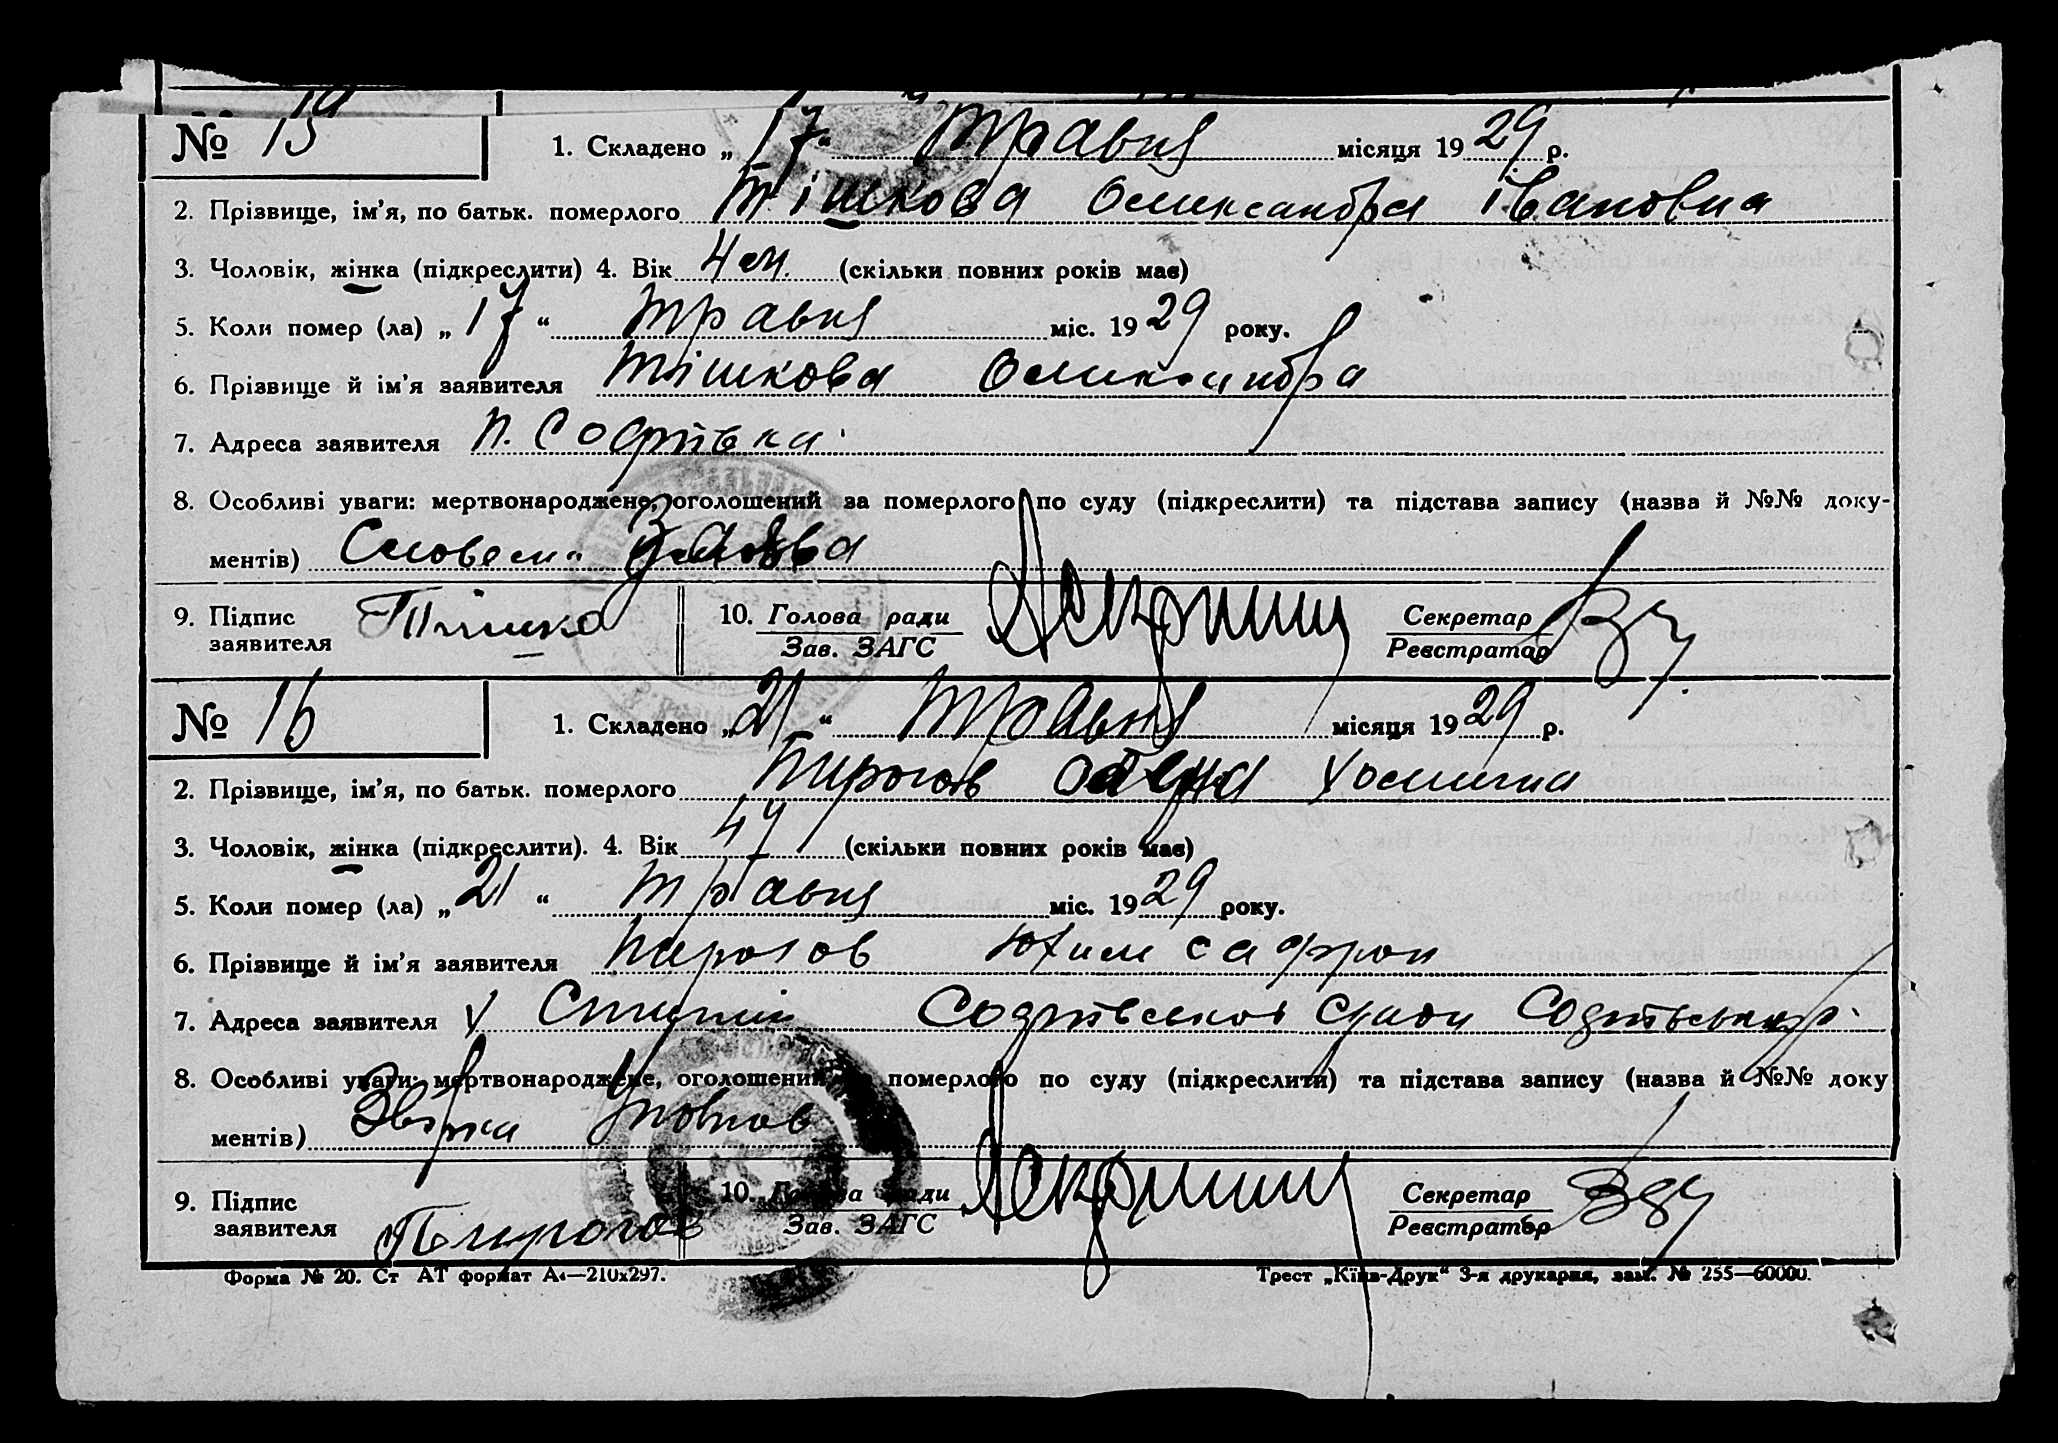 № 15 1. Складено „17“ травня місяця 1929 р.
2. Прізвище, ім'я, по батьк. померлого Тішкова Олександра Івановна
3. Чоловік, жінка (підкреслити) 4. Вік 4 м. (скільки повних років має)
5. Коли помер (ла) „17“ травня міс. 1929 року.
6. Прізвище й ім'я заявителя Тішкова Олександра
7. Адреса заявителя п. Софіївка
8. Особливі уваги: мертвонароджене, оголошений за померлого по суду (підкреслити) та підстава запису (назва й №№ доку-
ментів) Словесн. заява
9. Підпис 10. Голова ради Секретар
заявителя Тішко Зав. ЗАГС Реєстратор
№ 16 1. Складено „21“ травня місяця 1929 р.
2. Прізвище, ім'я, по батьк. померлого Пирогов
3. Чоловік, жінка (підкреслити). 4. Вік 49 (скільки повних років має)
5. Коли помер (ла) „21“ травня міс. 1929 року.
6. Прізвище й ім'я заявителя Пирогов Юхим Сафрон
7. Адреса заявителя
8. Особливі уваги: мертвонароджене, оголошений за померлого по суду (підкреслити) та підстава запису (назва й №№ доку
ментів)
9. Підпис 10. Голова ради Секретар
заявителя Пирогов Зав. ЗАГС Реєстратор
Форма № 20. Ст АТ формат А₄—210х297. Трест „Київ-Друк“ 3-я друкарня, зам. № 255—60000.